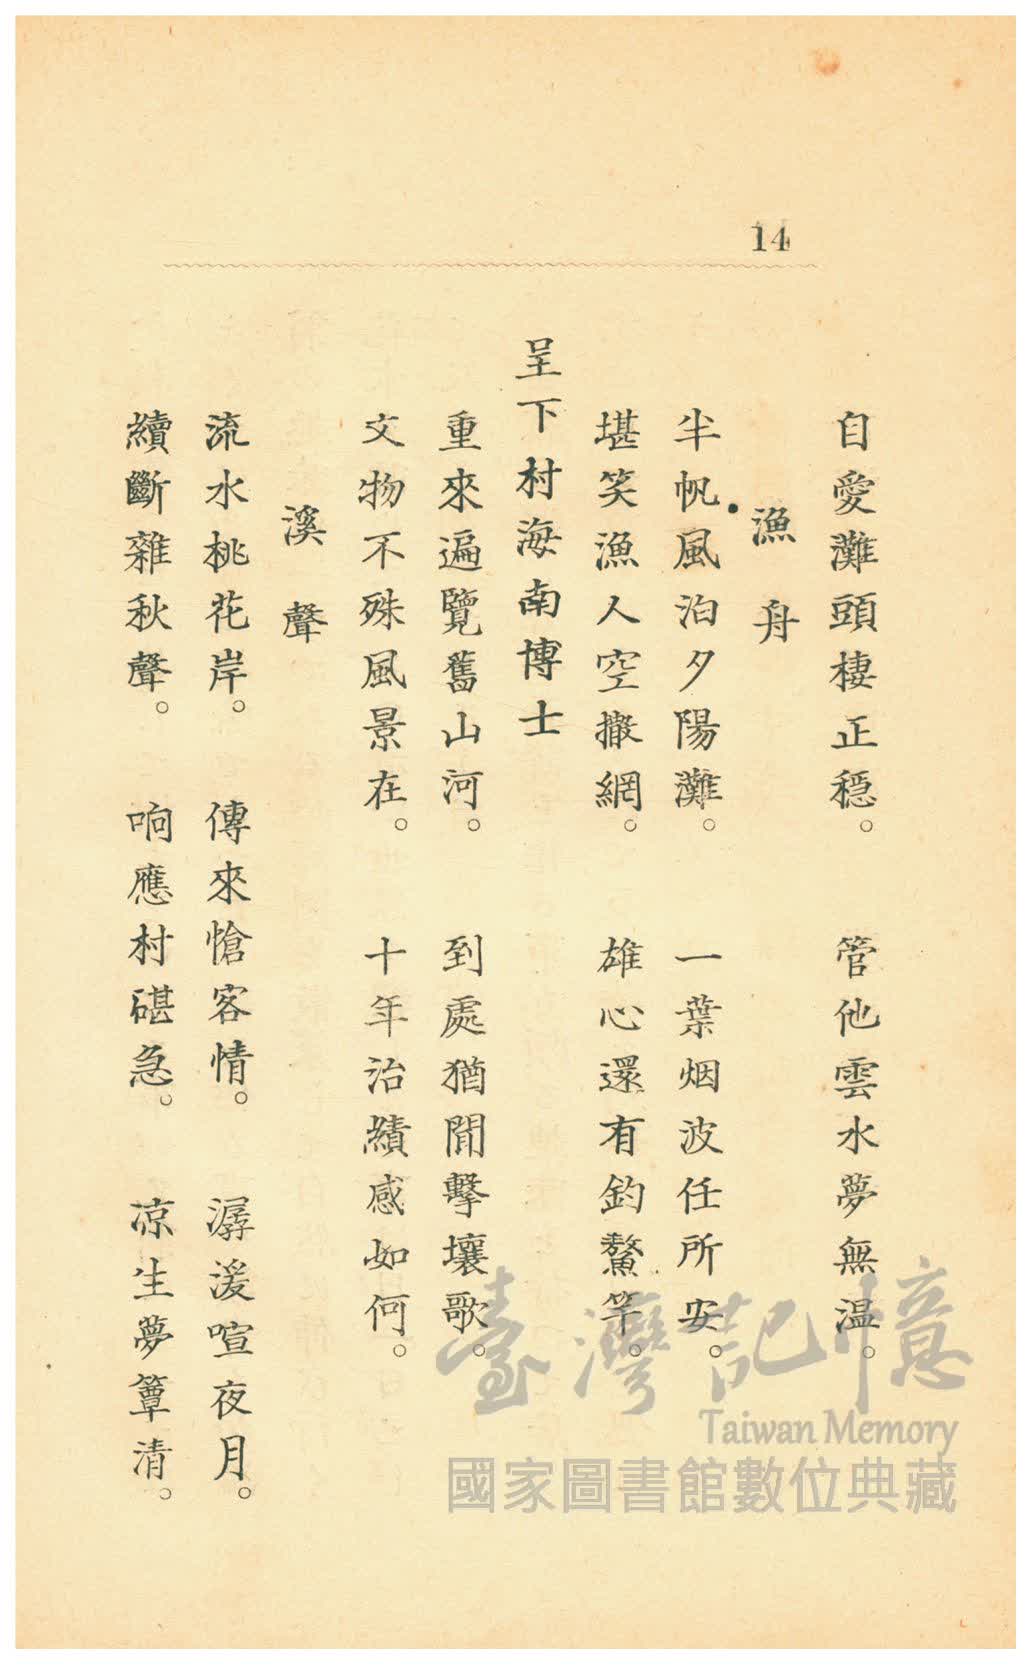 14
自愛灘頭棲正穩。　管他雲水夢無溫。
漁舟
半帆風泊夕陽灘。　一葉烟波任所安。
堪笑漁人空撒網。　雄心還有釣鰲竿。
呈下村海南博士
重來遍覽舊山河。　到處猶聞擊壤歌。
文物不殊風景在。　十年治績感如何。
溪聲
流水桃花岸。　傳來愴客情。　潺湲喧夜月。
續斷雜秋聲。　响應村碪急。　凉生夢簟清。
臺灣記憶
Taiwan Memory
國家圖書館數位典藏